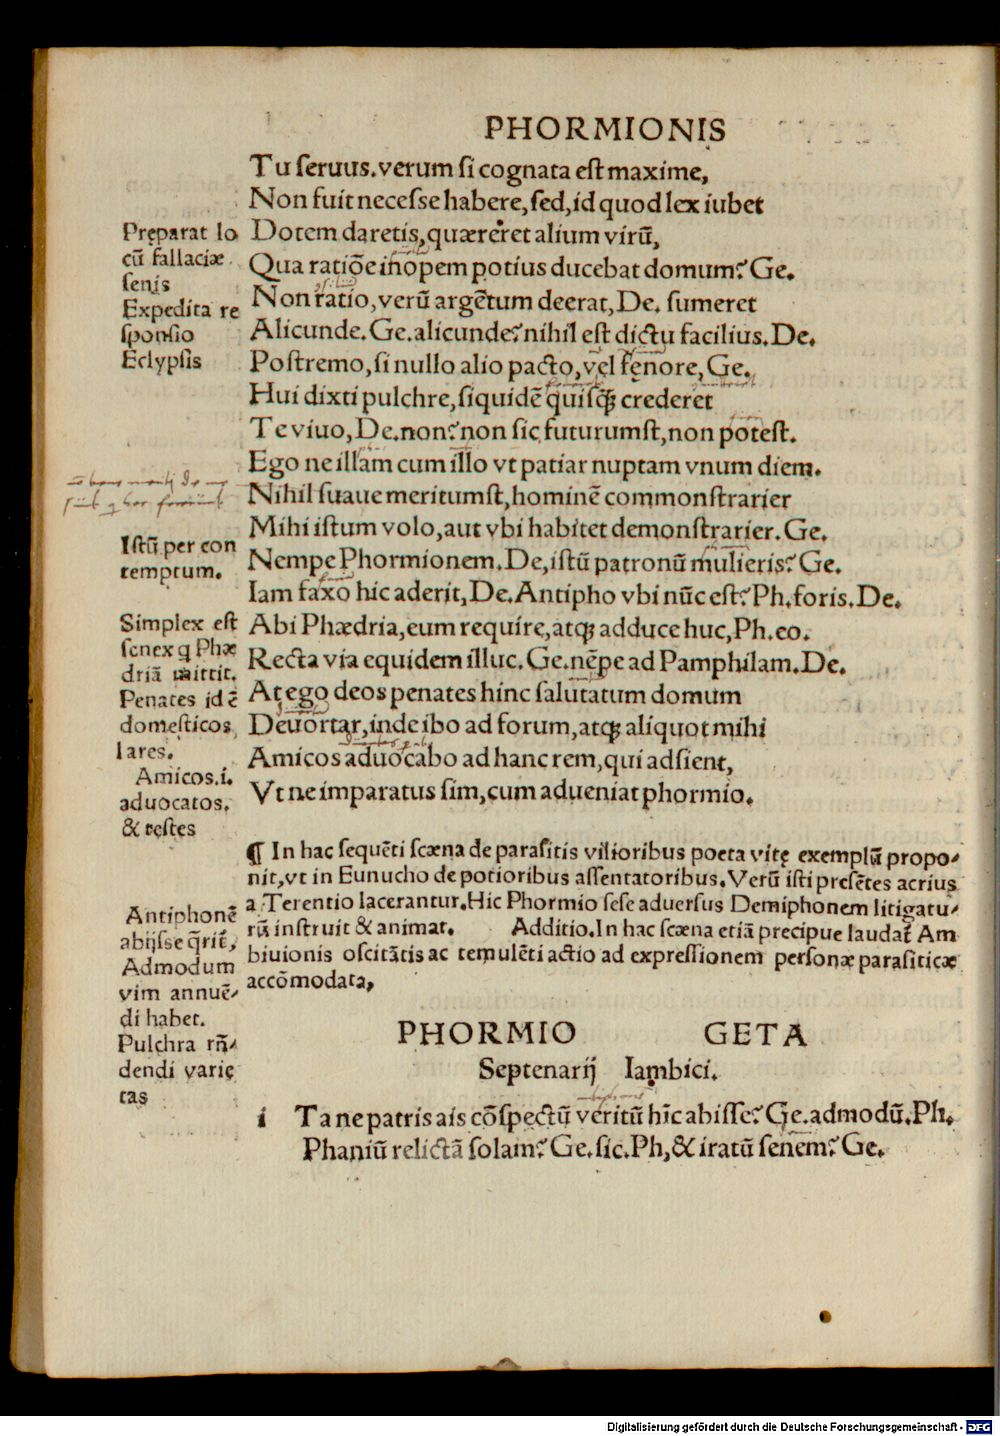 PHORMIONIS
Tu seruus.verum si cognata est maxime,
Non fuit necesse habere,sed,id quod lex iubet
Dotem daretis,quæreret alium virũ,
Qua ratiõe inopem potius ducebat domum? Ge.
Non ratio,verũ argẽtum deerat,De. sumeret
Alicunde.Ge.alicunde?nihil est dictu facilius.De.
Postremo,si nullo alio pacto,vel fęnore,Ge.
Hui dixti pulchre,siquidẽ quisq̃ crederet
Te viuo,De.non?non sic futurumst,non potest.
Ego ne illam cum illo vt patiar nuptam vnum diem.
Nihil suaue meritumst,hominẽ commonstrarier
Mihi istum volo,aut vbi habitet demonstrarier.Ge.
Nempe Phormionem.De,istũ patronũ mulieris? Ge.
Iam faxo hic aderit,De.Antipho vbi nũc est? Ph.foris.De.
Abi Phædria,eum require,atq; adduce huc,Ph.eo.
Recta via equidem illuc.Ge.nẽpe ad Pamphilam.De.
At ego deos penates hinc salutatum domum
Deuortar,inde ibo ad forum,atq; aliquot mihi
Amicos aduocabo ad hanc rem,qui adsient,
Vt ne imparatus sim,cum adueniat phormio.
Pręparat lo
cũ fallaciæ
senis
Expedita re
sponsio
Eclypsis
Istũ per con
temptum.
Simplex est
senex q Phæ
driã mittit.
Penates id ẽ
domesticos
lares.
Amicos.i.
aduocatos.
& testes
¶ In hac sequẽti scæna de parasitis vilioribus poeta vitę exemplũ propo-
nit,vt in Eunucho de potioribus assentatoribus.Verũ isti presẽtes acrius
a Terentio lacerantur.Hic Phormio sese aduersus Demiphonem litigatu-
rũ instruit & animat. Additio.In hac scæna etiã precipue laudat̃ Am
biuionis oscitãtis ac temulẽti actio ad expressionem personæ parasiticæ
accõmodata,
Antiphonẽ
abijsse q̃rit̃,
Admodum
vim annuẽ-
di habet.
Pulchra rñ-
dendi varię
tas
PHORMIO GETA
Septenarij Iambici.
i Ta ne patris ais cõspectũ veritũ hĩc abisse? Ge.admodũ.Ph.
Phaniũ relictã solam? Ge.sic.Ph,& iratũ senem? Ge.
Digitalisierung gefördert durch die Deutsche Forschungsgemeinschaft - DFG